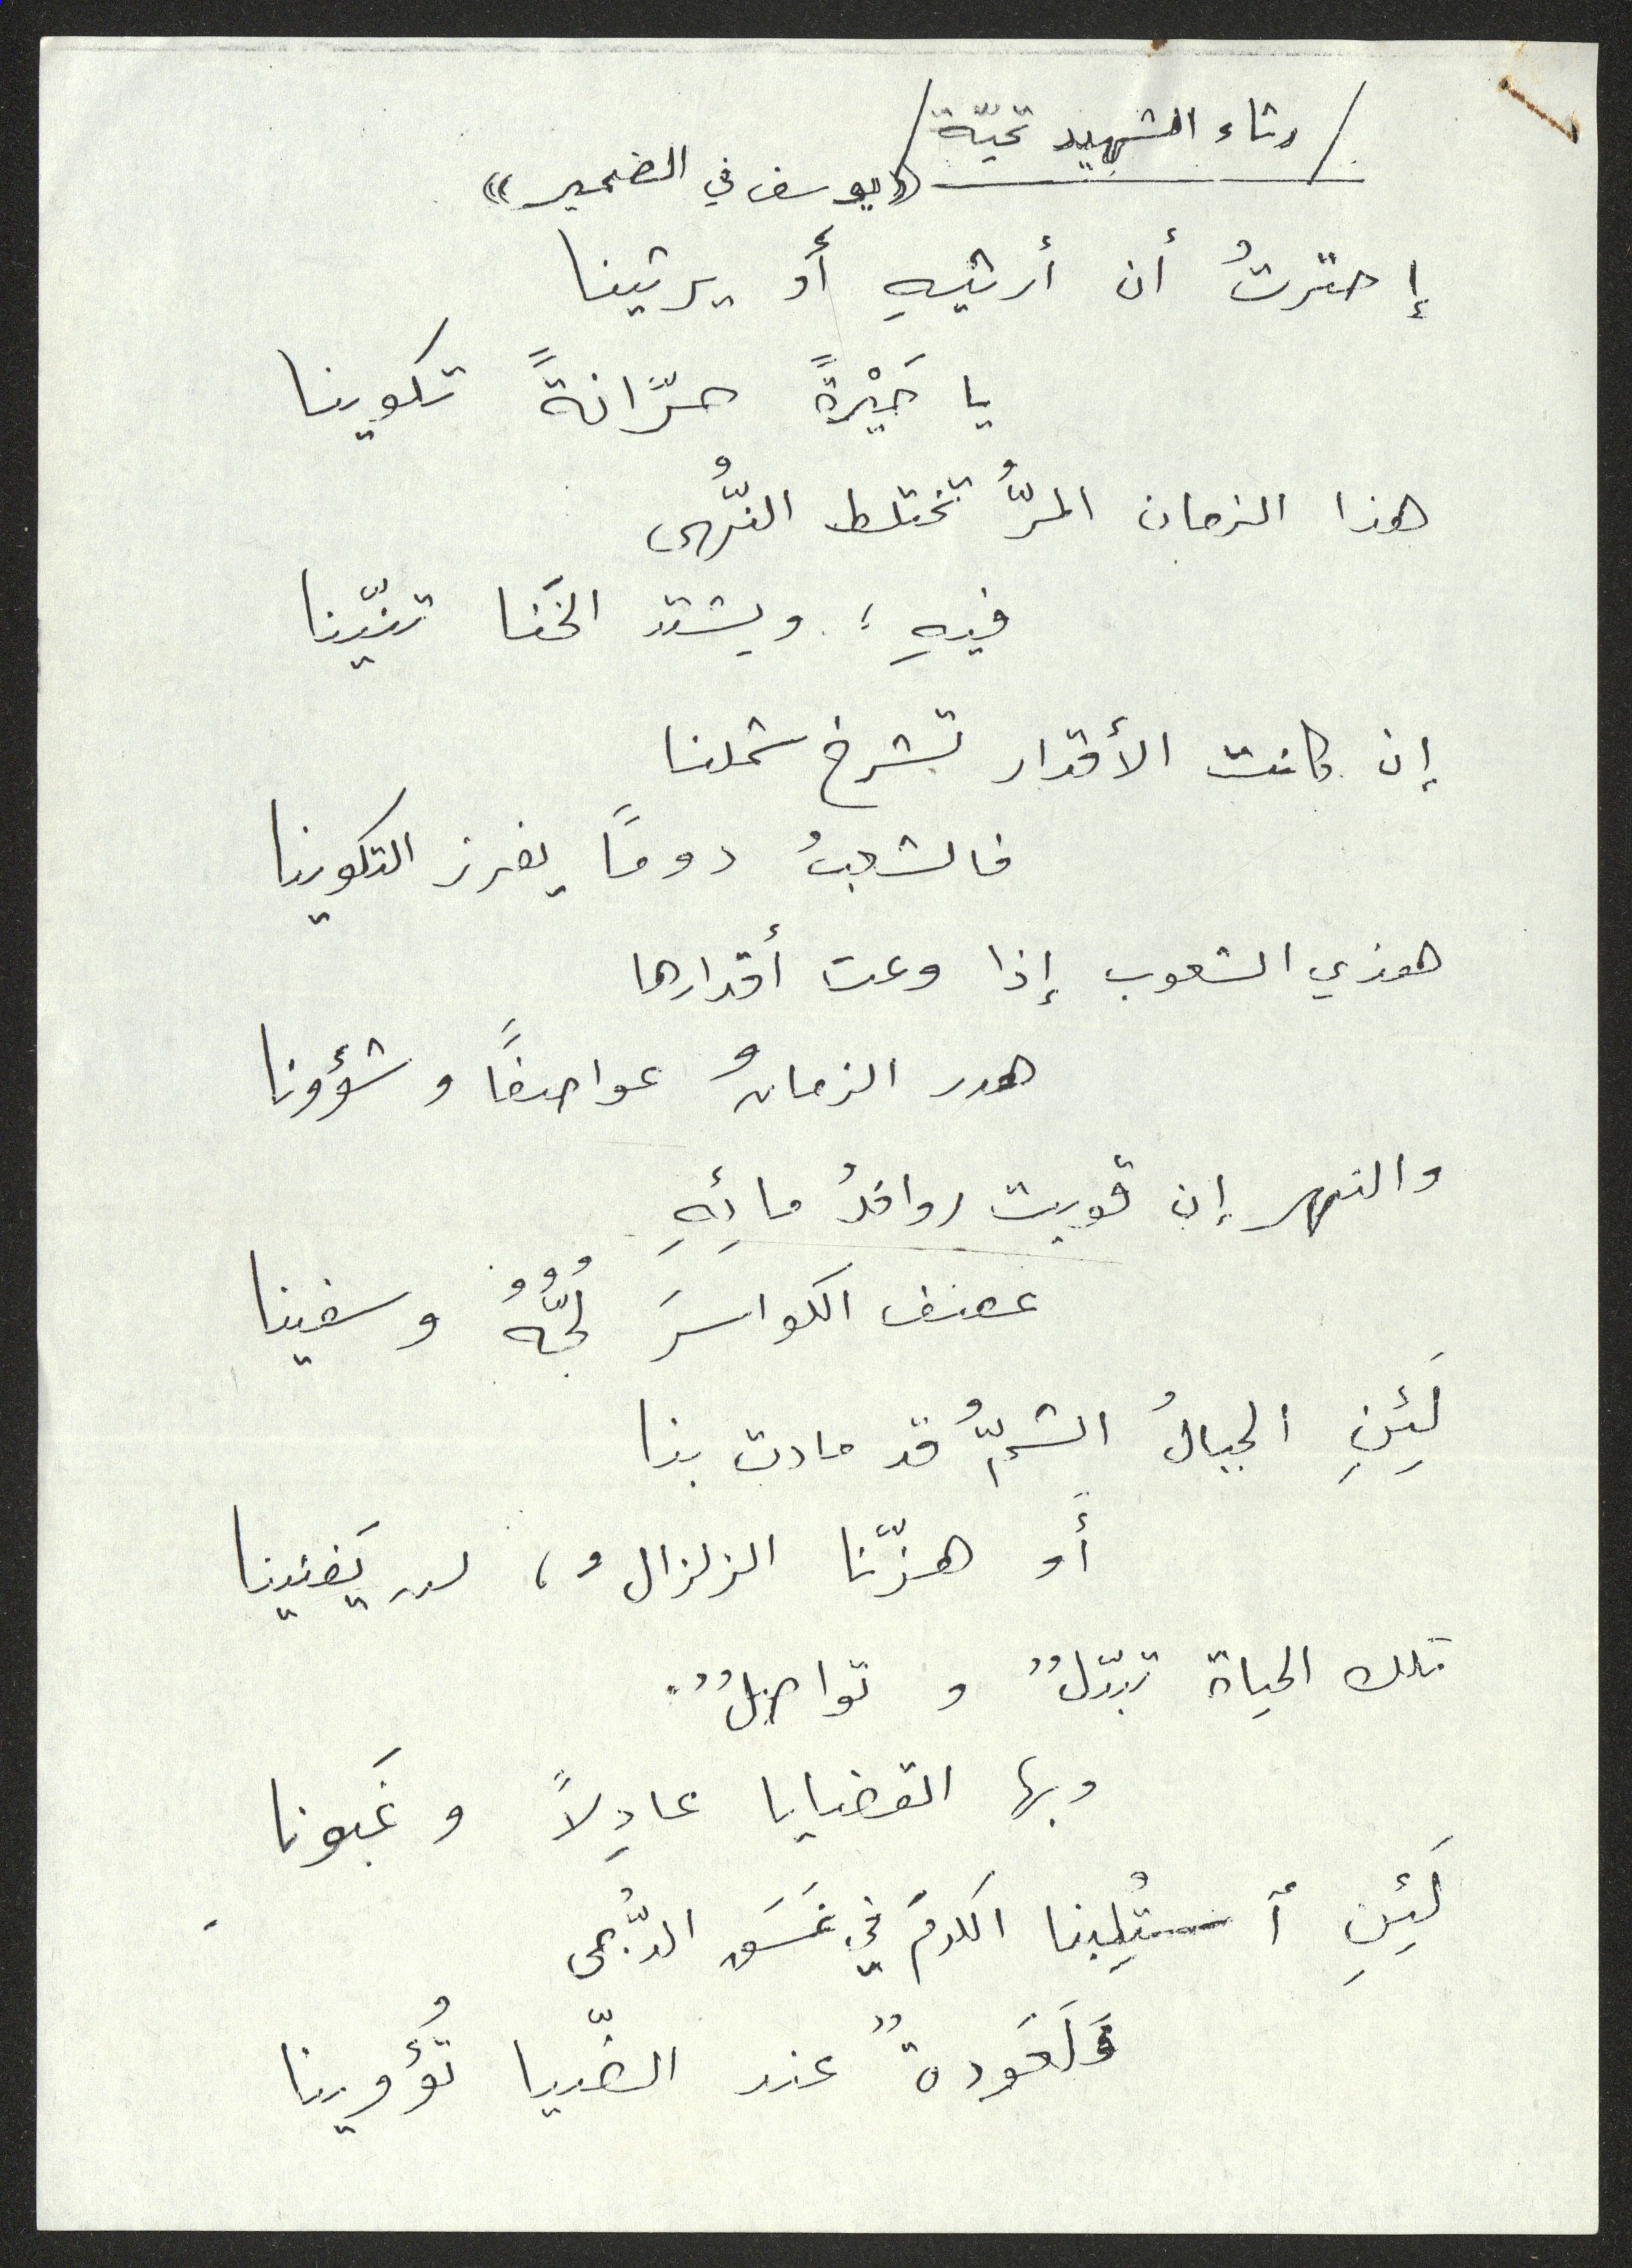 رثاء الشهيد تحيّة
«يوسف في الضمير»
إحترتُ أن أرثيهِ أو يرثينا
يا حَيْرةً حرّانةً تكوينا
هذا الزمان المرُّ تختلط النُّهى
فيهِ؛ ويشتد الخَنا تنّينا
إن كانت الأقدار تشرخ شملنا
فالشعبُ دومًا يفرز التكوينا
هذي الشعوب إذا وعت أقدارها
هدر الزمانُ عواصفًا وشؤونا
والنهر إن قويت روافدُ مائِهِ
عصف الكواسرَ لُجُّهُ وسفينا
لَئِنِ الجبالُ الشمُّ قد مادت بنا
أو هزّنا الزلزالُ، لن يَفنينا
تلك الحياة تبدّلٌ وتواصلٌ
وبها القضايا عادِلاً وغَبونا
لَئِنِ أستُلِبنا الكرمَ في غَسَقِ الدُّجى
وَلَعَودةٌ عند الضّيا تُؤوينا